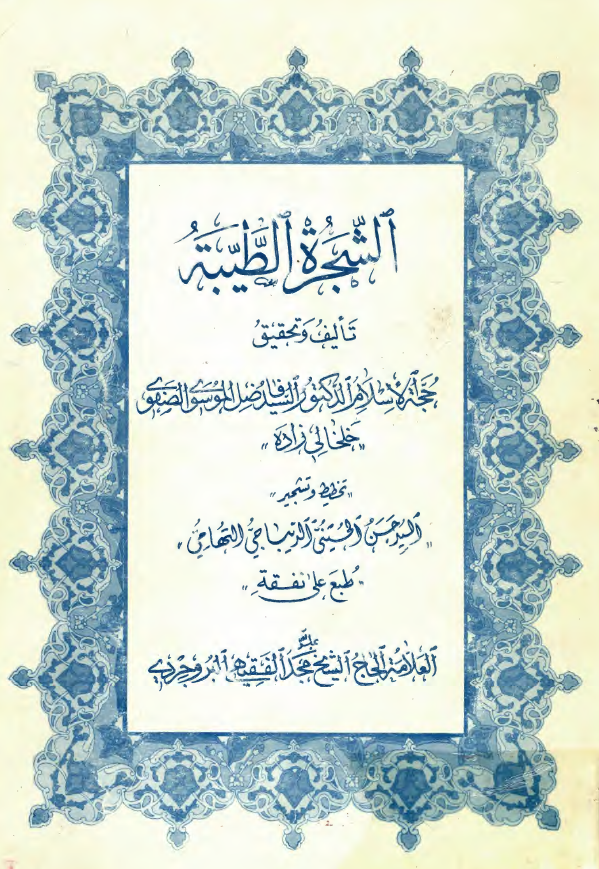 الشَّجَرَةُ الطَّيِّبَةُ
تَأْلِيفُ وَتَحْقِيقُ
حُجَّةِ الْإِسْلَامِ الدُّكْتُورِ السَّيِّدِ فَاضِلِ الْمُوسَوِيِّ الصَّفَوِيِّ
"خَلْخَالِي زَادَه"
"تخطيط وتشجير"
"السَّيِّدِ حَسَنِ الْحُسَيْنِيِّ الدِّيبَاجِيِّ التِّهَامِيِّ"
"طُبِعَ عَلَى نَفَقَةِ"
الْعَلَّامَةِ الْحَاجِّ الشَّيْخِ مُحَمَّد الْفَقِيهِي الْبُرُوجِرْدِي